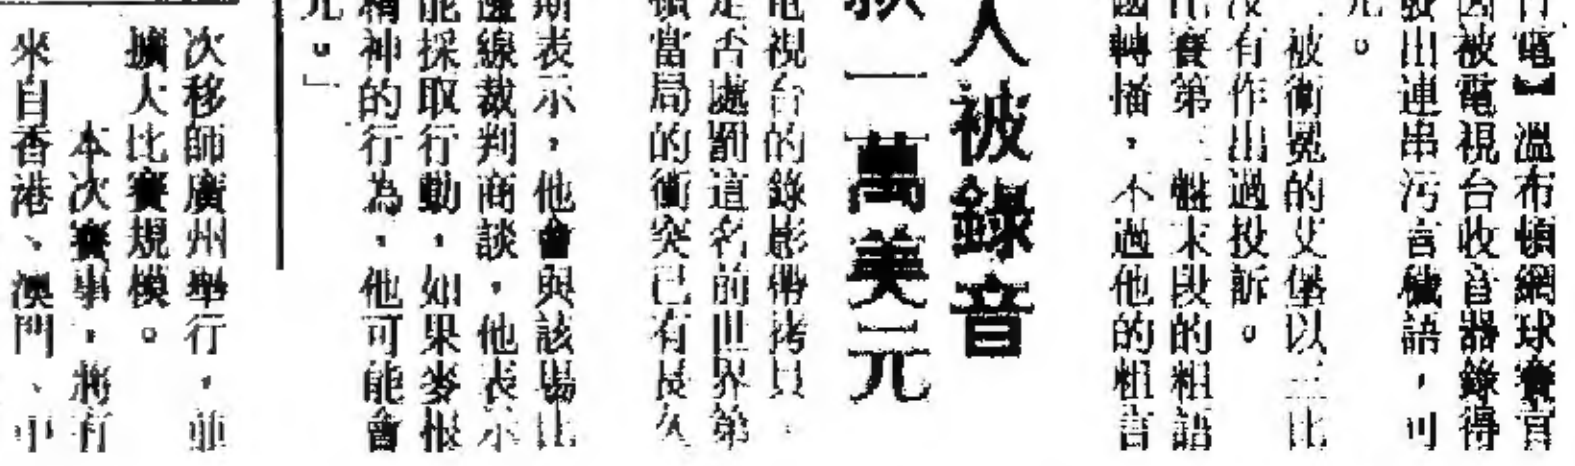 電】溫布頓網球賽官
因被電視台收音器錄得
發出連串污言穢語，可
元。
被衛冕的艾堡以三比
沒有作出過投訴。
比賽第三盤末段的粗語
國轉播，不過他的粗言
人被錄音
一萬美元
電視台的錄影帶拷貝，
是否處罰這名前世界第
頓當局的衝突已有長久
期表示，他會與該場比
邊線裁判商談，他表示
能採取行動，如果麥根
精神的行為，他可能會
元。」
次移師廣州舉行，並
擴大比賽規模。
本次賽事，將有
來自香港、澳門、中